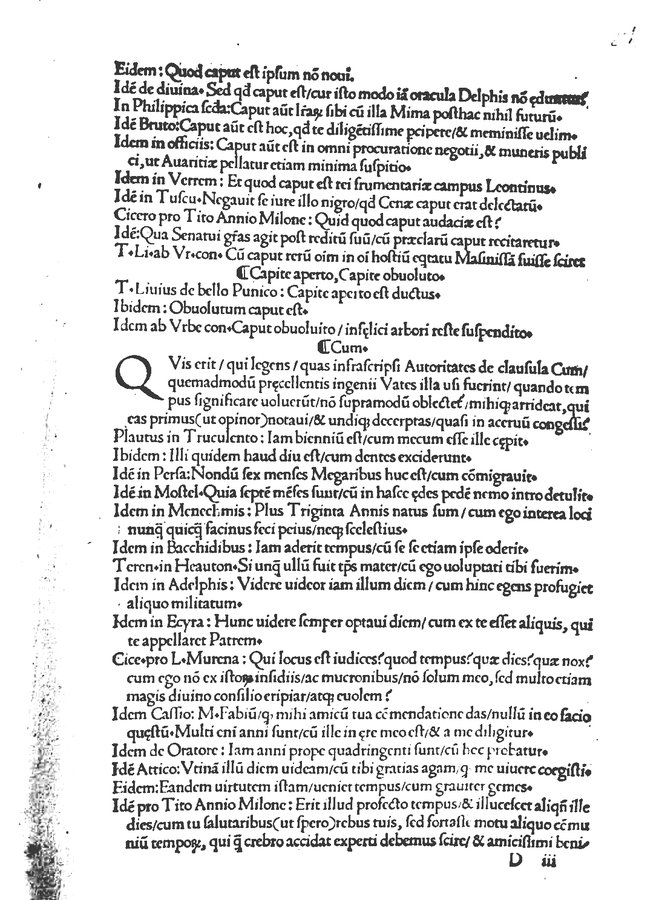 Eidem: Quod caput est ipsum nõ noui.
Idẽ de diuina. Sed qd caput est/cur isto modo iã oracula Delphis nõ ęduntur?
In Philippica scďa: Caput aũt lr̃aꝝ sibi cũ illa Mima posthac nihil futurũ.
Idẽ Bruto: Caput aũt est hoc, qd te diligẽtissime ꝑcipere/& meminisse uelim.
Idem in officiis: Caput aũt est in omni procuratione negotii, & muneris publi
ci, ut Auaritiæ pellatur etiam minima suspitio.
Idem in Verrem: Et quod caput est rei frumentariæ campus Leontinus.
Idẽ in Tuscu. Negauit se iure illo nigro/qd Cenæ caput erat delectatũ.
Cicero pro Tito Annio Milone: Quid quod caput audaciæ est?
Idẽ: Qua Senatui gr̃as agit post reditũ suũ/cũ præclarũ caput recitaretur.
T. Li. ab Vr. con. Cũ caput rerũ oim in oi hostiũ eqtatu Masinissã fuisse sciret
¶Capite aperto, Capite obuoluto.
T. Liuius de bello Punico: Capite aperto est ductus.
Ibidem: Obuolutum caput est.
Idem ab Vrbe con. Caput obuoluito/infęlici arbori reste suspendito.
¶Cum.
QVis erit/qui legens/quas infrascripsi Autoritates de clausula Cum/
quemadmodũ pręcellentis ingenii Vates illa usi fuerint/quando tem
pus significare uoluerũt/nõ supramodũ oblectet̃/mihiq; arrideat, qui
eas primus(ut opinor)notaui/& undiq; decerptas/quasi in aceruũ congessi?
Plautus in Truculento: Iam bienniũ est/cum mecum esse ille cępit.
Ibidem: Illi quidem haud diu est/cum dentes exciderunt.
Idẽ in Persa: Nondũ sex menses Megaribus huc est/cum cõmigrauit.
Idẽ in Mostel. Quia septẽ mẽses sunt/cũ in hasce ędes pedẽ nemo intro detulit.
Idem in Menechmis: Plus Triginta Annis natus sum/cum ego interea loci
nunq̃ quicq̃ facinus feci peius/neq; scelestius.
Idem in Bacchidibus: Iam aderit tempus/cũ se se etiam ipse oderit.
Teren. in Heauton. Si unq̃ ullũ fuit tp̃s mater/cũ ego uoluptati tibi fuerim.
Idem in Adelphis: Videre uideor iam illum diem/cum hinc egens profugiet
aliquo militatum.
Idem in Ecyra: Hunc uidere semper optaui diem/cum ex te esset aliquis, qui
te appellaret Patrem.
Cice. pro L. Murena: Qui locus est iudices? quod tempus? quæ dies? quæ nox?
cum ego nõ ex istoꝝ insidiis/ac mucronibus/nõ solum meo, sed multo etiam
magis diuino consilio eripiar/atq; euolem?
Idem Cassio: M. Fabiũ/q mihi amicũ tua cõmendatione das/nullũ in eo facio
quęstũ. Multi eni anni sunt/cũ ille in ęre meo est/& a me diligitur.
Idem de Oratore: Iam anni prope quadringenti sunt/cũ hec probatur.
Idẽ Attico: Vtinã illũ diem uideam/cũ tibi gratias agam, q me uiuere coegisti.
Eidem: Eandem uirtutem istam/ueniet tempus/cum grauiter gemes.
Idẽ pro Tito Annio Milone: Erit illud profecto tempus/& illucescet aliqñ ille
dies/cum tu salutaribus(ut spero)rebus tuis, sed fortasse motu aliquo cõmu
niũ tempoꝝ, qui q̃ crebro accidat experti debemus scire/& amicissimi beni.
D iii